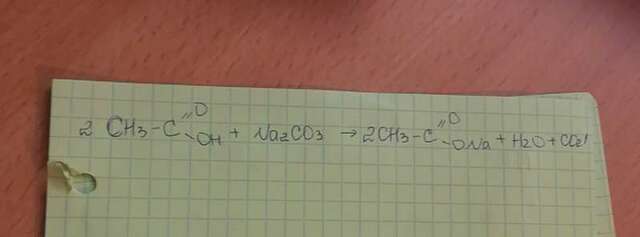 2 CH3-C(=O)-OH + Na2CO3 → 2CH3-C(=O)-ONa + H2O + CO2↑